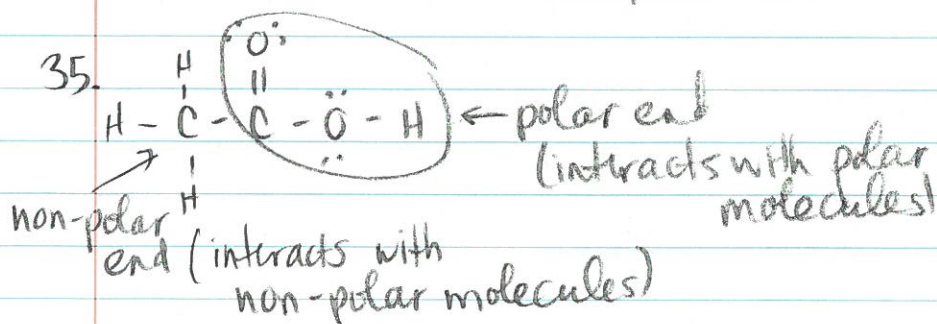 35.
:O:
H ||
H - C - C - Ö - H ← polar end
(interacts with polar
molecules)
H
non-polar
end (interacts with
non-polar molecules)